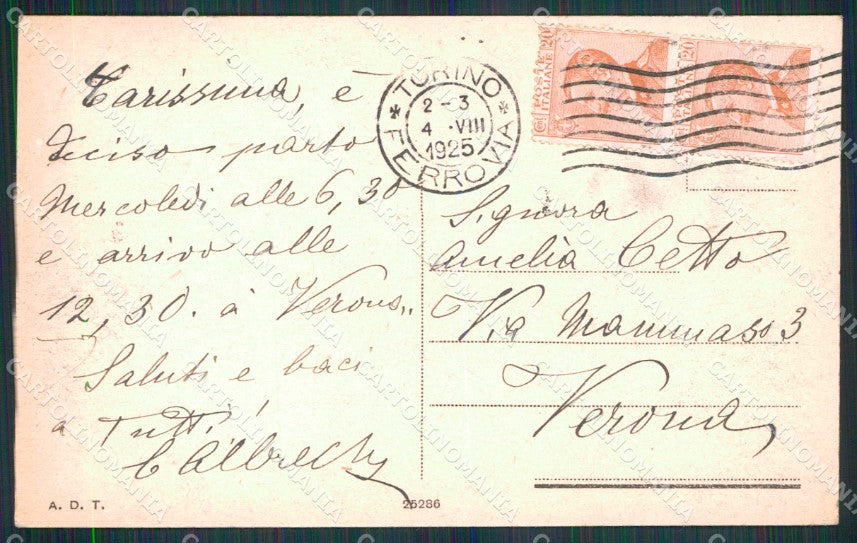 Carissima, è
deciso parto
Mercoledi alle 6,30
e arrivo alle
12,30. à Verona..
Saluti e baci
a Tutti!
A. D. T.
25286
TORINO
FERROVIA
2-3
4 .VIII
1925
POSTE ITALIANE
Cmi 20
20
Signora
Amelia Cetto
Via Mammaso 3
Verona
CARTOLINOMANIA